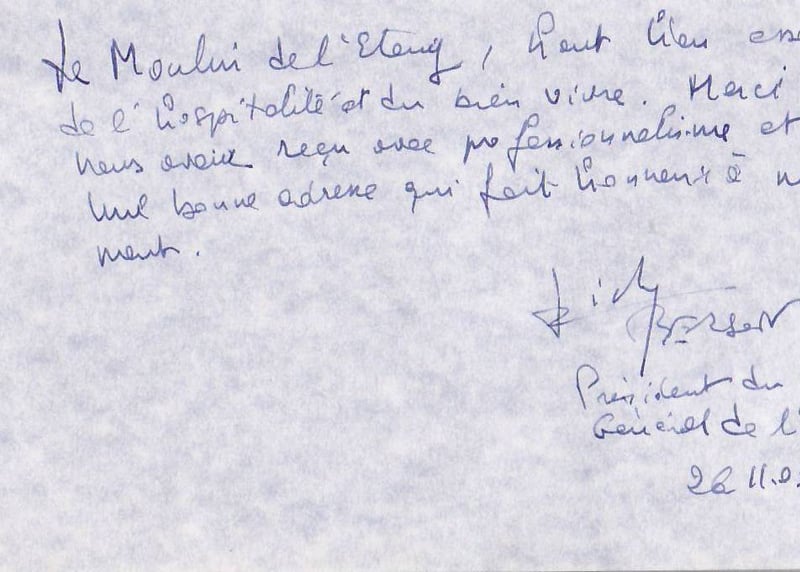 Le Moulin de l'Etang, haut lieu
de l'hospitalité et du bien vivre. Merci
nous avoir reçu avec professionnalisme et
Une bonne adresse qui fait honneur à
ment.
Président du
Général de l'
26 11.0